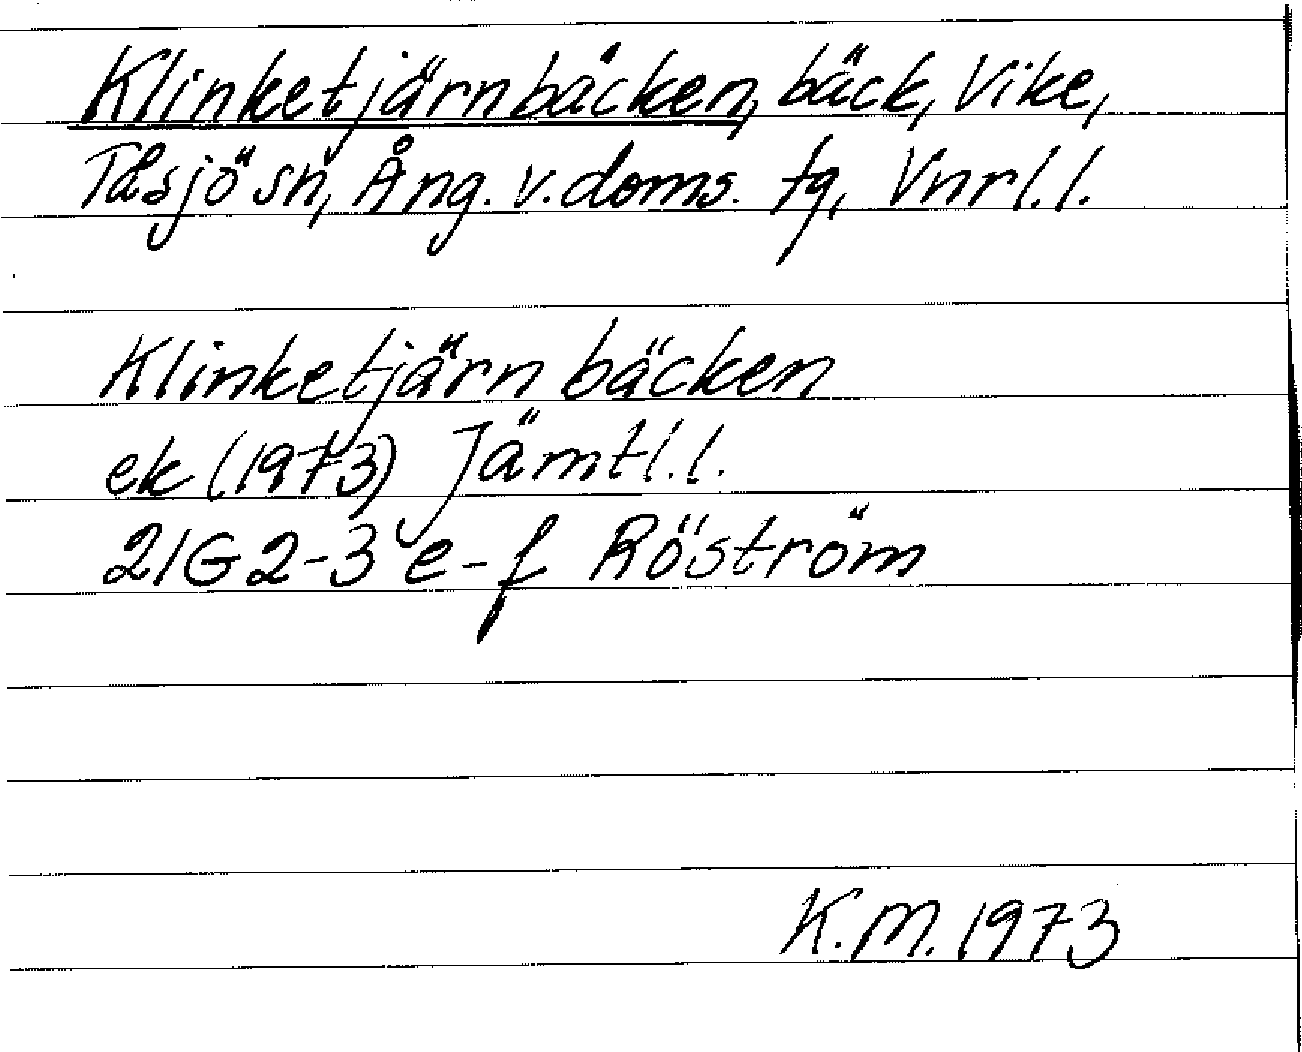 Klinketjärnbäcken, bäck, Vike,
Tåsjö sn, Ång. v. doms. tg, Vnrl. l.
Klinketjärn bäcken
ek (1973) Jämtl. l.
21G 2-3 e-f Röström
K. M. 1973